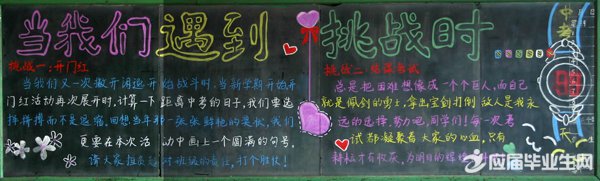 当我们遇到挑战时
挑战一:开门红
当我们又一次敞开
始战斗时,当新学期开始开
门红活动再次展开时,计算一下距离中考的日子,我们要选
择拼搏而不是退缩,回想当年那一张张鲜艳的奖状,我们
更要在本次活动中画上一个圆满的句号,
请大家担负起对班级的责任,打个胜仗!
挑战二:
总是把困难想像成一个个巨人,而自己
就是佩剑的勇士,拿出宝剑打倒敌人是我永
远的选择,努力吧,同学们!每一次考
试都凝聚着大家的心血,只有
才有收获,为明日的辉煌
中考
天
应届毕业生网